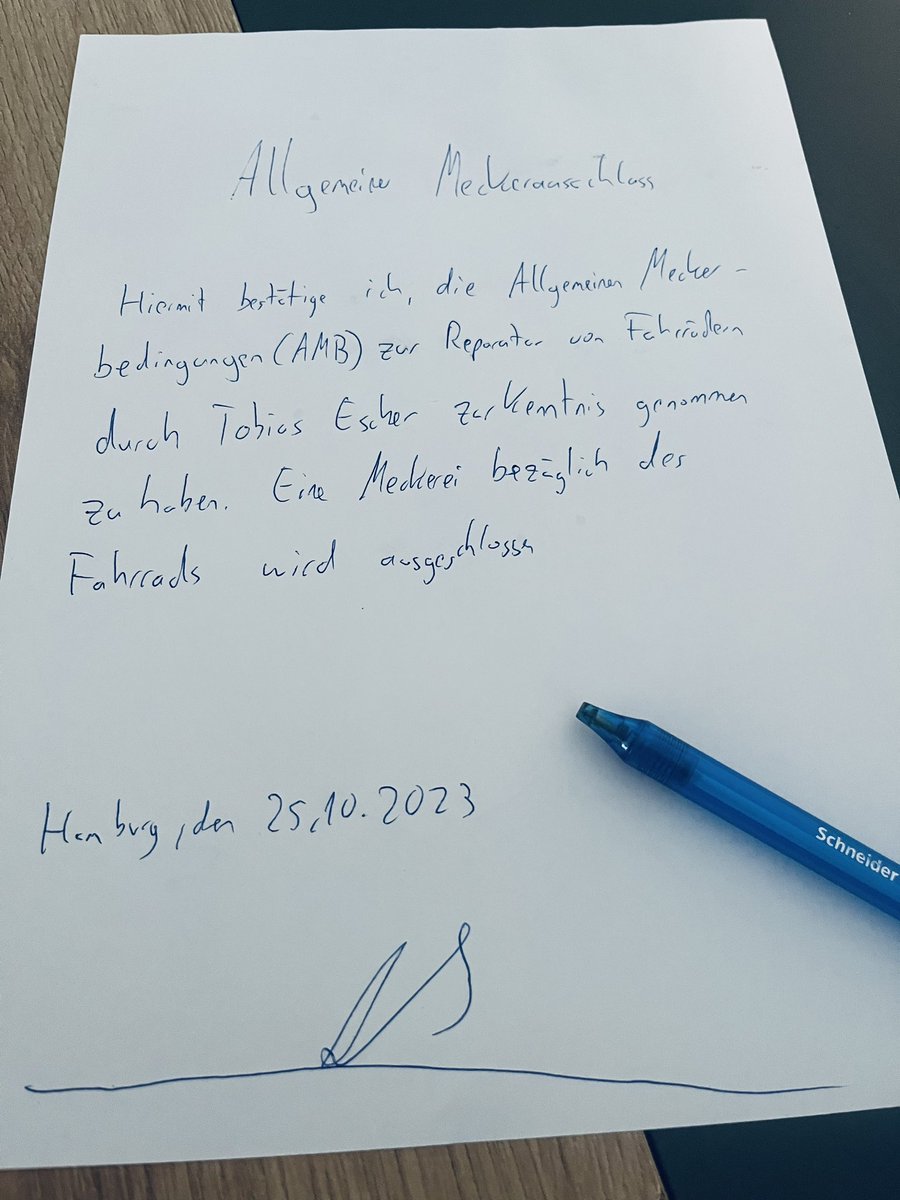 Allgemeiner Meckerausschluss
Hiermit bestätige ich, die Allgemeinen Mecker-
bedingungen (AMB) zur Reparatur von Fahrrädern
durch Tobias Escher zur Kenntnis genommen
zu haben. Eine Meckerei bezüglich des
Fahrrads wird ausgeschlossen
Hamburg, den 25.10.2023
Schneider